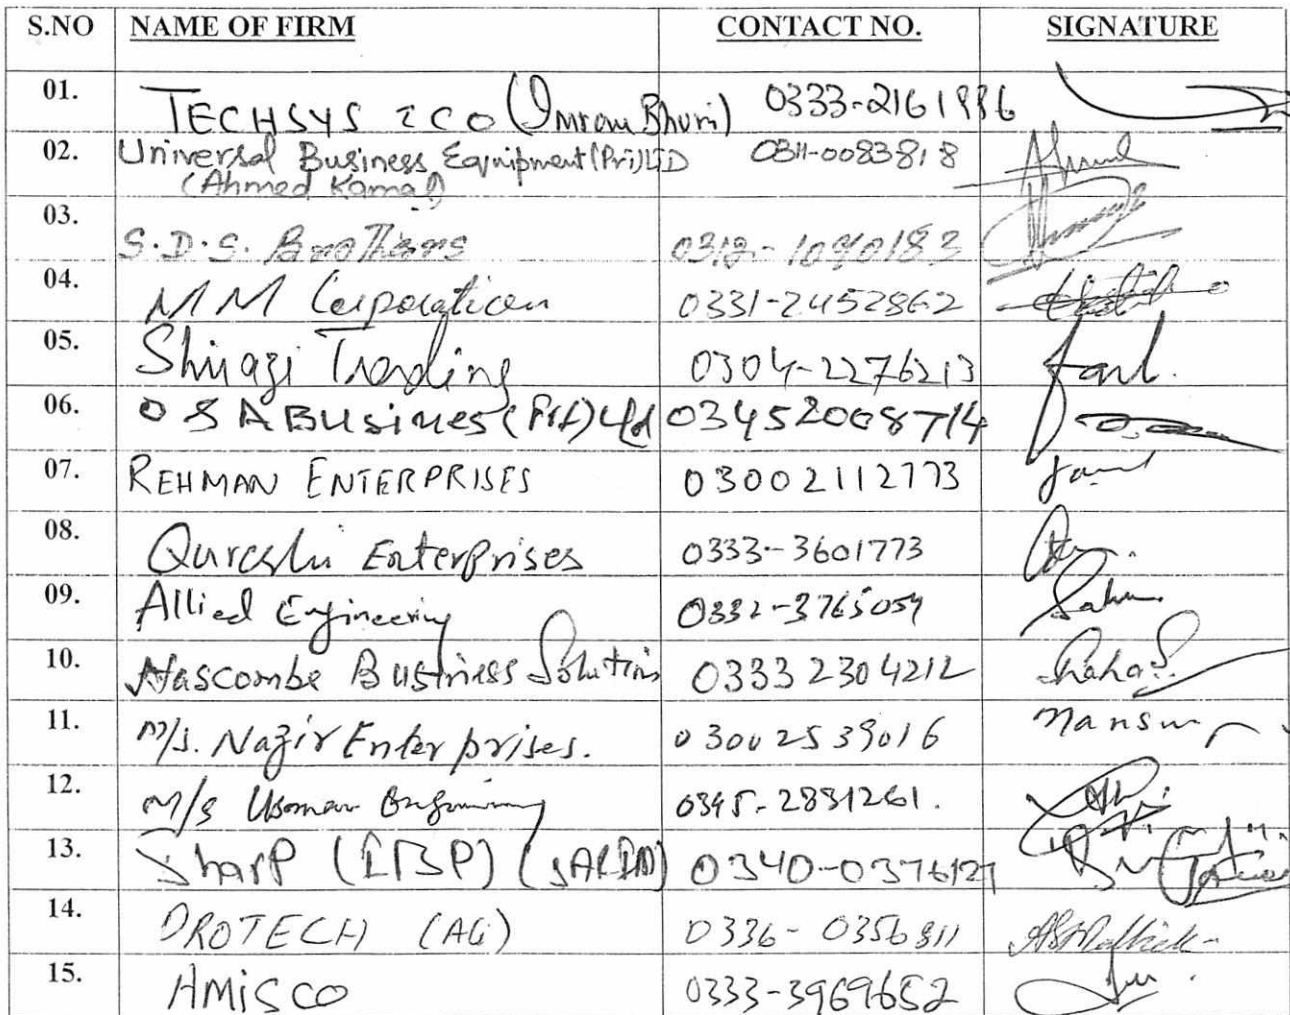 S.NO NAME OF FIRM CONTACT NO. SIGNATURE
01. TECHSYS & CO (Imran Bhuri) 0333-2161986
02. Universal Business Equipment (Pri) LTD 0311-0083818
(Ahmed Kamal)
03. S.D.S. Brothers 0312-1090183
04. MM Corporation 0331-2452862
05. Shirazi Trading 0304-2276213
06. O S A BUsines (Pvt) Ltd 03452008714
07. REHMAN ENTERPRISES 03002112773
08. Qureshi Enterprises 0333-3601773
09. Allied Engineering 0332-3765059
10. Hascombe Business Solutions 0333 2304212
11. M/s. Nazir Enterprises. 03002539016 Mansur
12. M/s Usman Engineering 0345-2831261.
13. Sharp (IBP) 0340-0376127
14. DROTECH (AG) 0336-0356811
15. AMISCO 0333-3969652